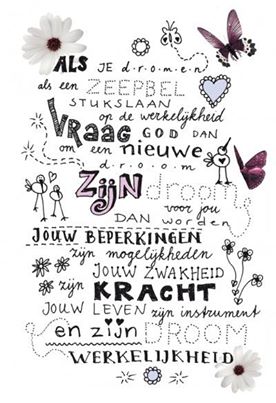 ALS JE dromen
als een ZEEPBEL
STUKSLAAN
op de werkelijkheid
VRAAG GOD DAN
om een nieuwe
droom
ZIJN droom
voor jou
DAN worden
JOUW BEPERKINGEN
zijn mogelijkheden
JOUW ZWAKHEID
zijn KRACHT
JOUW LEVEN zijn instrument
en zijn DROOM
WERKELIJKHEID